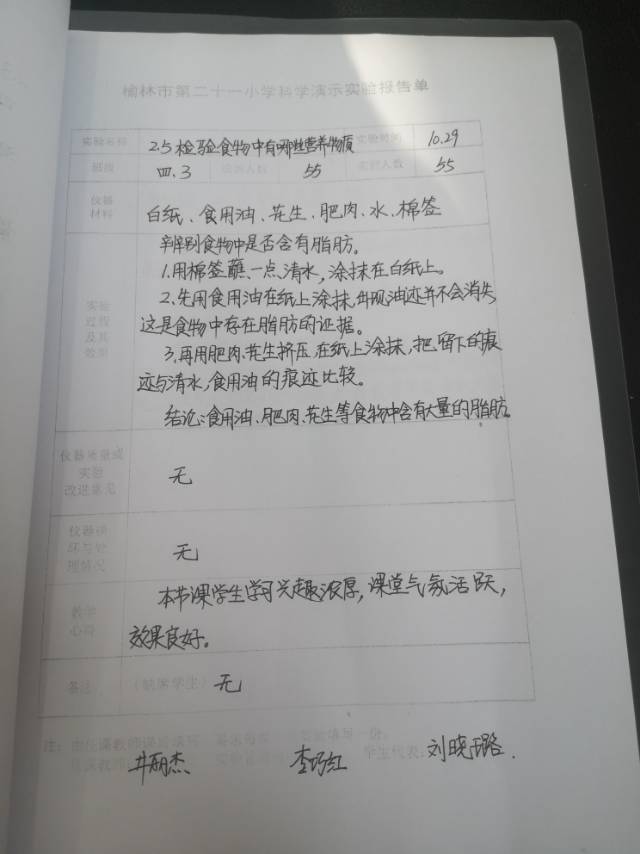 榆林市第二十一小学科学演示实验报告单
实验名称 2.5检验食物中有哪些营养物质 实验时间 10.29
班级 四.3 应到人数 55 实到人数 55
仪器材料 白纸、食用油、花生、肥肉、水、棉签
实验过程及其效果
辨别食物中是否含有脂肪。
1.用棉签蘸一点清水,涂抹在白纸上。
2.先用食用油在纸上涂抹,出现油迹并不会消失
这是食物中存在脂肪的证据。
3.再用肥肉、花生挤压,在纸上涂抹,把留下的痕
迹与清水,食用油的痕迹比较。
结论:食用油、肥肉、花生等食物中含有大量的脂肪。
仪器质量或实验改进意见 无
仪器损坏与处理情况 无
教学心得
本节课学生学习兴趣浓厚,课堂气氛活跃,
效果良好。
备注 (缺席学生) 无
注:
学生代表:刘晓璐
李巧红